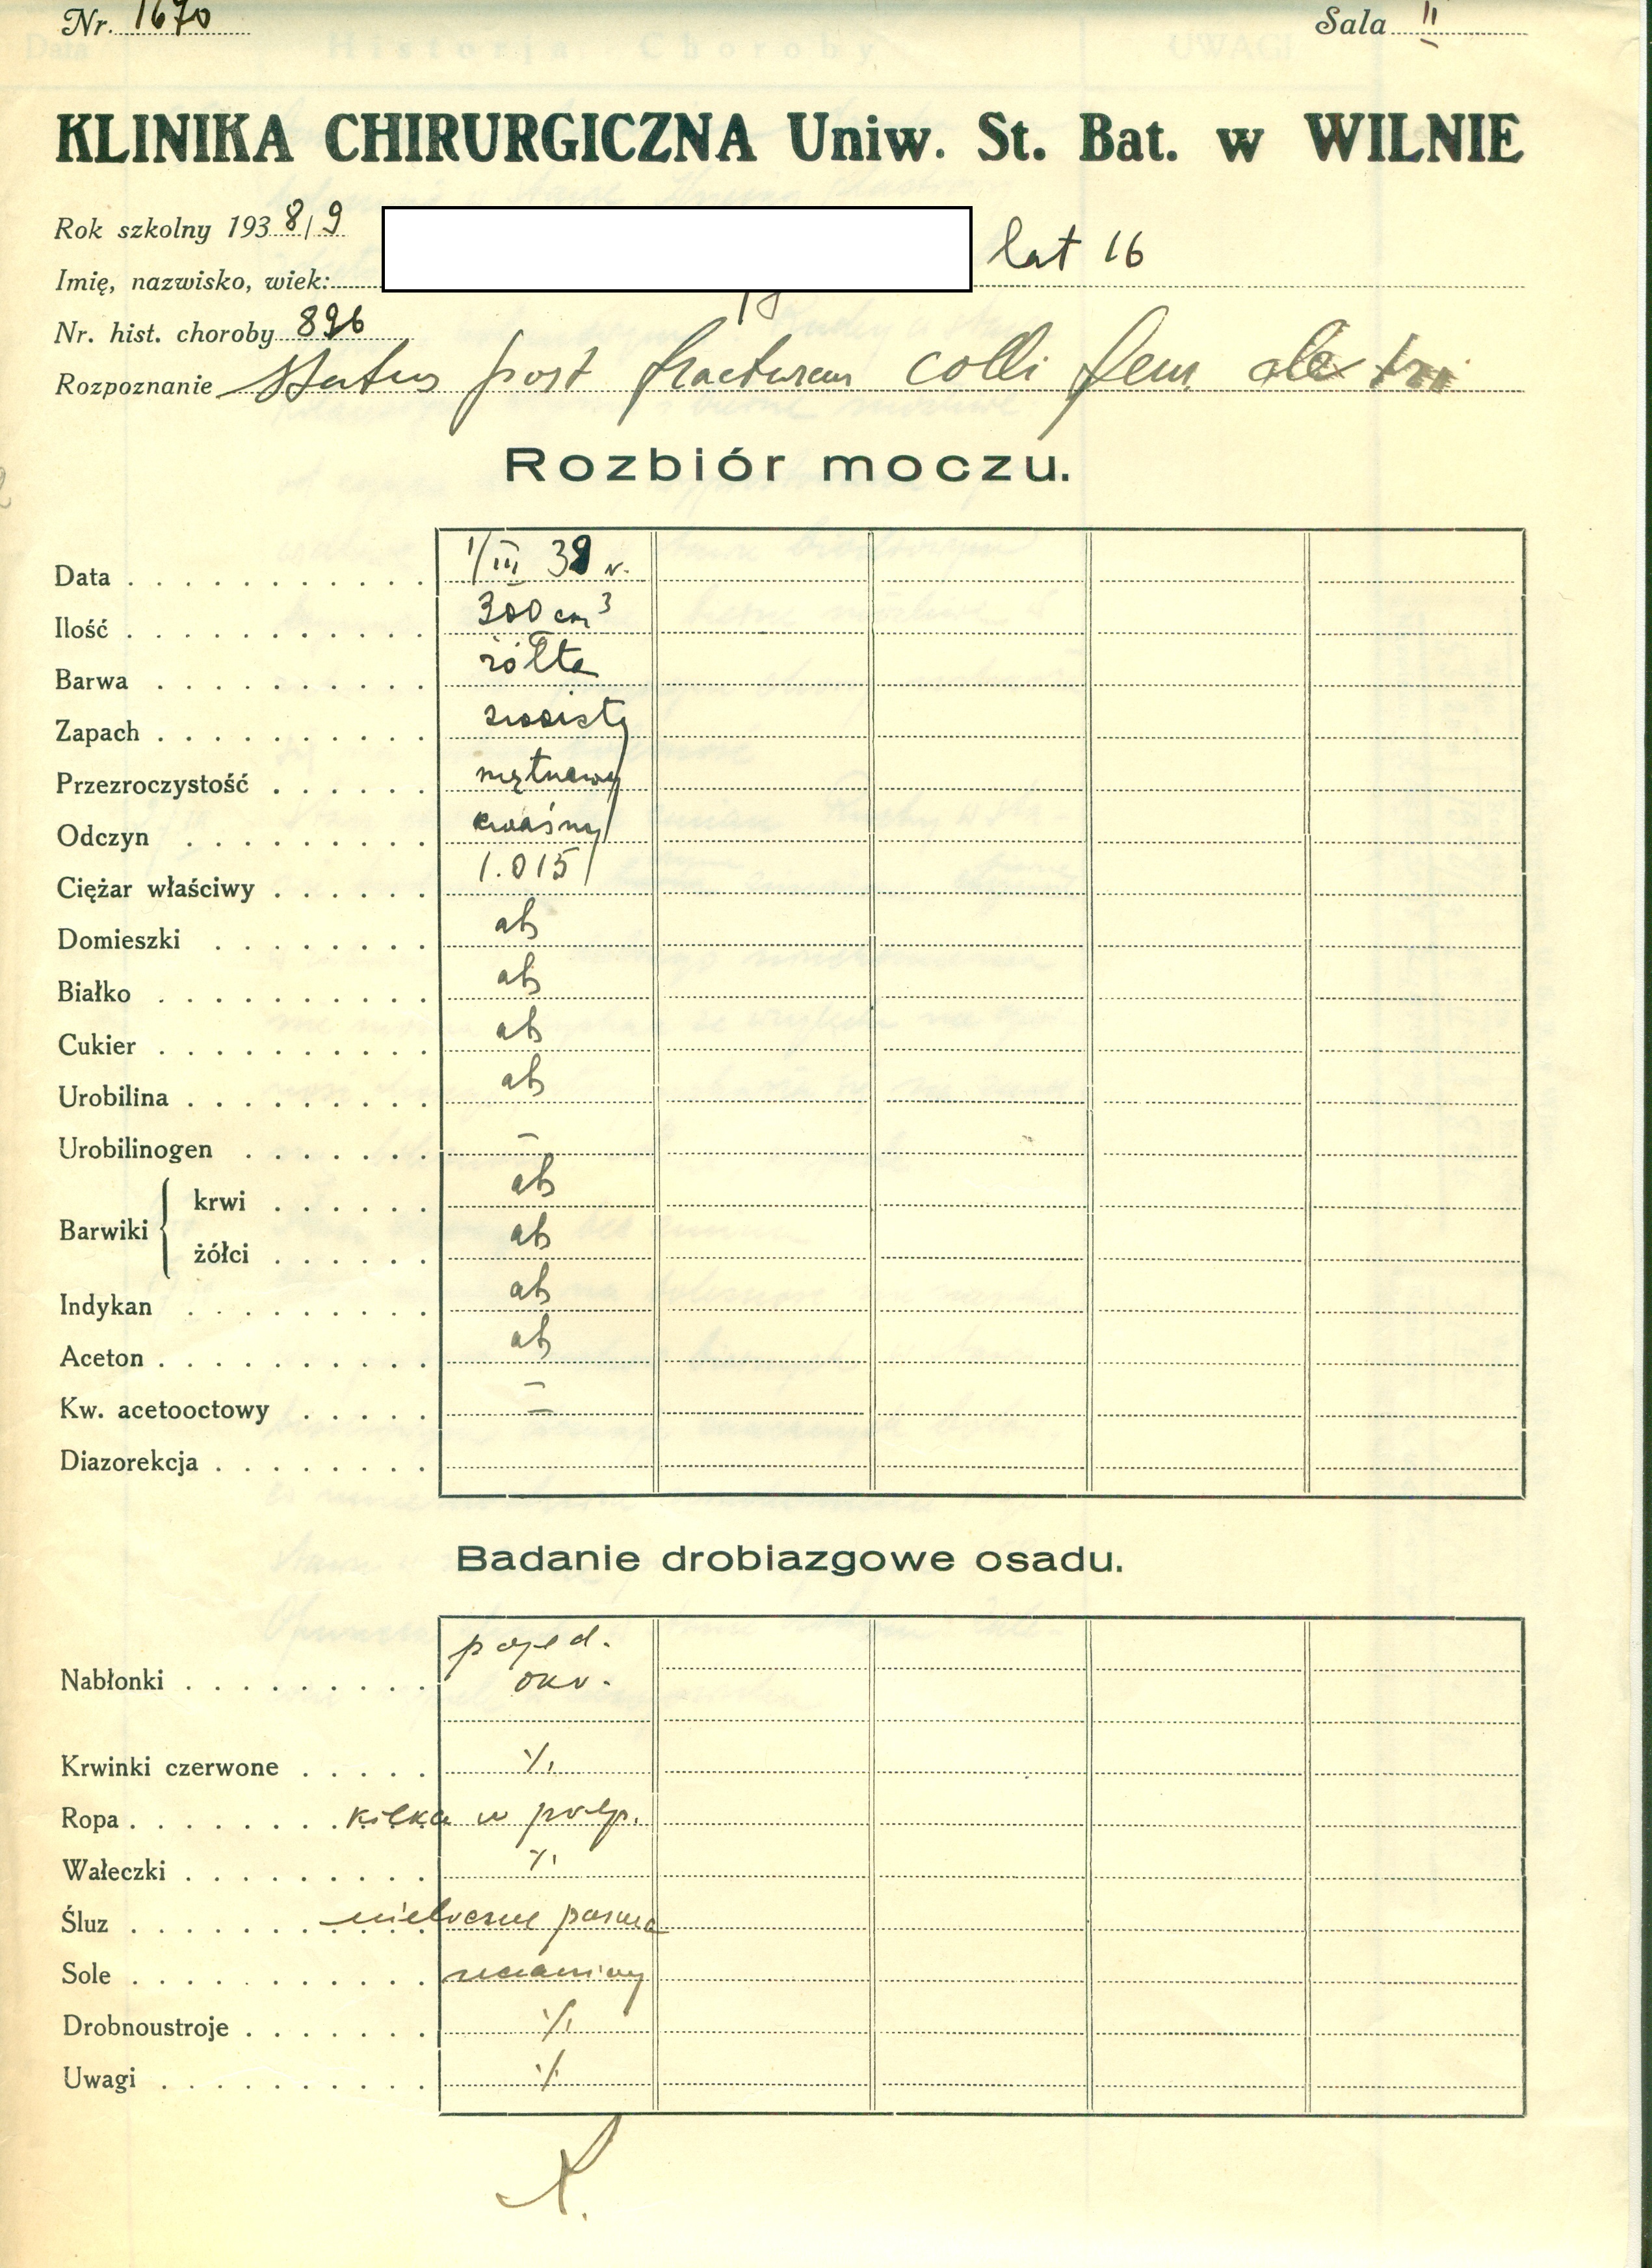 Nr. 1670 Sala II
KLINIKA CHIRURGICZNA Uniw. St. Bat. w WILNIE
Rok szkolny 1938/9
Imię, nazwisko, wiek: lat 16
Nr. hist. choroby 896
Rozpoznanie Status post fracturam colli fem dextri
Rozbiór moczu.
Data 1/III 39 r.
Ilość 300 cm3
Barwa żółta
Zapach swoisty
Przezroczystość mętnawy
Odczyn kwaśny
Ciężar właściwy 1.015
Domieszki ab
Białko ab
Cukier ab
Urobilina ab
Urobilinogen –
Barwiki { krwi ab
żółci ab
Indykan ab
Aceton ab
Kw. acetooctowy –
Diazorekcja –
Badanie drobiazgowe osadu.
Nabłonki pojed.
okr.
Krwinki czerwone ·/.
Ropa kilka w polp.
Wałeczki ·/.
Śluz nieliczne pasma
Sole
Drobnoustroje ·/.
Uwagi ·/.